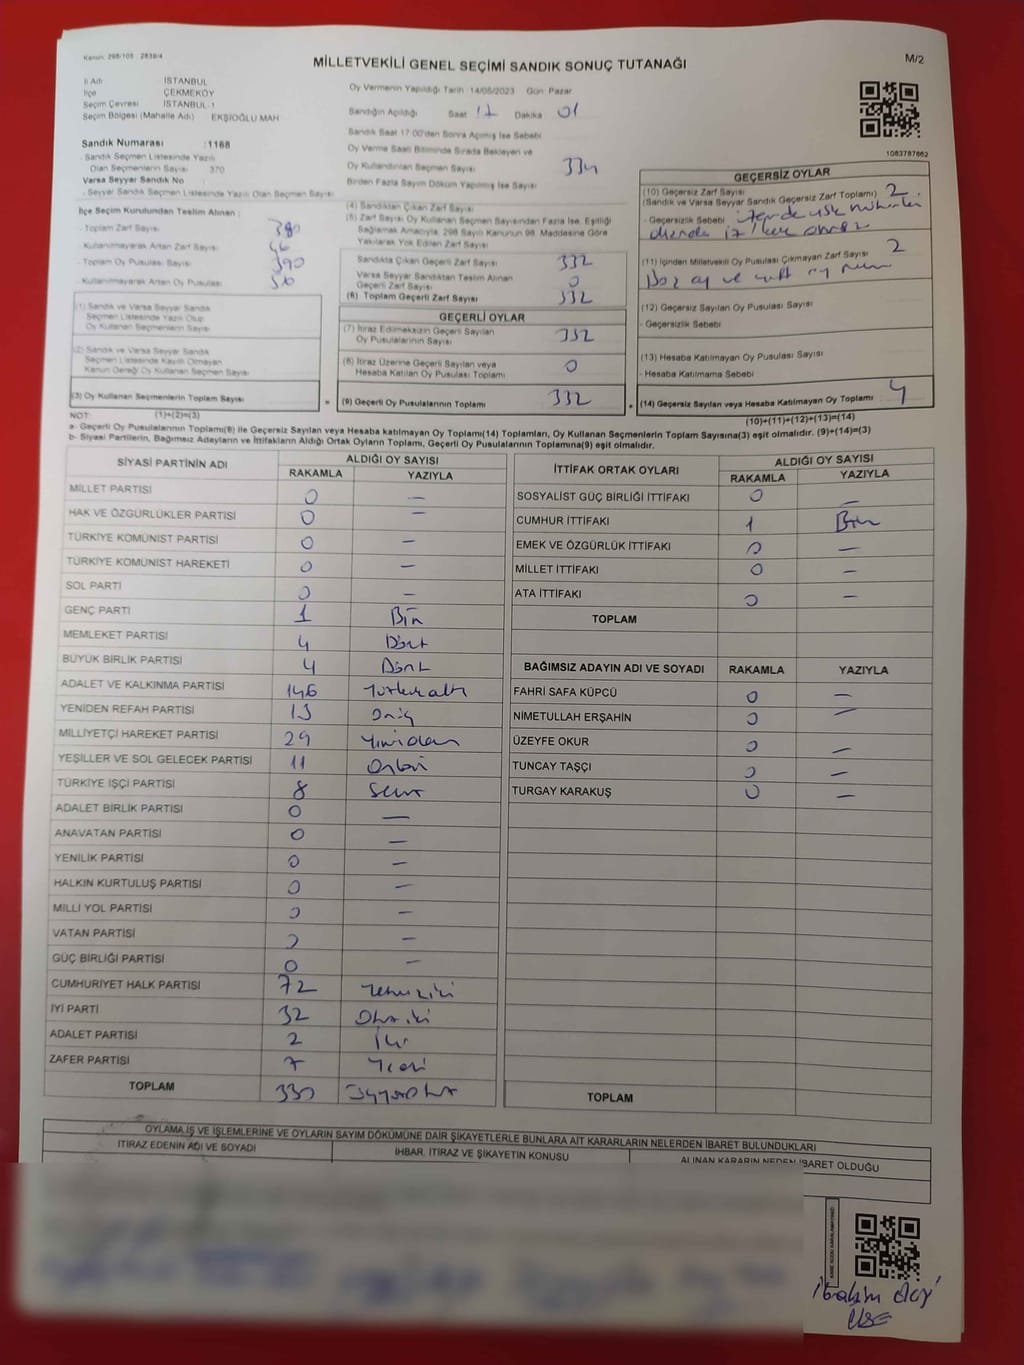 Kanun: 298/105 2839/4
MİLLETVEKİLİ GENEL SEÇİMİ SANDIK SONUÇ TUTANAĞI
M/2
İl Adı İSTANBUL
İlçe ÇEKMEKÖY
Seçim Çevresi İSTANBUL-1
Seçim Bölgesi (Mahalle Adı) EKŞİOĞLU MAH
Sandık Numarası :1168
- Sandık Seçmen Listesinde Yazılı
Olan Seçmenlerin Sayısı 370
Varsa Seyyar Sandık No
- Seyyar Sandık Seçmen Listesinde Yazılı Olan Seçmen Sayısı
İlçe Seçim Kurulundan Teslim Alınan :
- Toplam Zarf Sayısı 380
- Kullanılmayarak Artan Zarf Sayısı
- Toplam Oy Pusulası Sayısı 390
- Kullanılmayarak Artan Oy Pusulası
(1) Sandık ve Varsa Seyyar Sandık
Seçmen Listesinde Yazılı Olup
Oy Kullanan Seçmenlerin Sayısı
(2) Sandık ve Varsa Seyyar Sandık
Seçmen Listesinde Kayıtlı Olmayan
Kanun Gereği Oy Kullanan Seçmen Sayısı
(3) Oy Kullanan Seçmenlerin Toplam Sayısı
Oy Vermenin Yapıldığı Tarih 14/05/2023 Gün Pazar
Sandığın Açıldığı Saat 17 Dakika 01
Sandık Saat 17.00'den Sonra Açılmış İse Sebebi
Oy Verme Saati Bitiminde Sırada Bekleyen ve
Oy Kullandırılan Seçmen Sayısı 334
Birden Fazla Sayım Döküm Yapılmış İse Sayısı
(4) Sandıktan Çıkan Zarf Sayısı
(5) Zarf Sayısı Oy Kullanan Seçmen Sayısından Fazla İse, Eşitliği
Sağlamak Amacıyla, 298 Sayılı Kanunun 98. Maddesine Göre
Yakılarak Yok Edilen Zarf Sayısı
Sandıkta Çıkan Geçerli Zarf Sayısı 332
Varsa Seyyar Sandıktan Teslim Alınan
Geçerli Zarf Sayısı 0
(6) Toplam Geçerli Zarf Sayısı 332
GEÇERLİ OYLAR
(7) İtiraz Edilmeksizin Geçerli Sayılan
Oy Pusulalarının Sayısı 332
(8) İtiraz Üzerine Geçerli Sayılan veya
Hesaba Katılan Oy Pusulası Toplamı 0
= (9) Geçerli Oy Pusulalarının Toplamı 332
1083787862
GEÇERSİZ OYLAR
(10) Geçersiz Zarf Sayısı
(Sandık ve Varsa Seyyar Sandık Geçersiz Zarf Toplamı) 2
- Geçersizlik Sebebi
(11) İçinden Milletvekili Oy Pusulası Çıkmayan Zarf Sayısı 2
(12) Geçersiz Sayılan Oy Pusulası Sayısı
- Geçersizlik Sebebi
(13) Hesaba Katılmayan Oy Pusulası Sayısı
- Hesaba Katılmama Sebebi
+ (14) Geçersiz Sayılan veya Hesaba Katılmayan Oy Toplamı 4
NOT: (1)+(2)=(3)
(10)+(11)+(12)+(13)=(14)
a- Geçerli Oy Pusulalarının Toplamı(9) ile Geçersiz Sayılan veya Hesaba katılmayan Oy Toplamı(14) Toplamları, Oy Kullanan Seçmenlerin Toplam Sayısına(3) eşit olmalıdır. (9)+(14)=(3)
b- Siyasi Partilerin, Bağımsız Adayların ve İttifakların Aldığı Ortak Oyların Toplamı, Geçerli Oy Pusulalarının Toplamına(9) eşit olmalıdır.
SİYASİ PARTİNİN ADI ALDIĞI OY SAYISI
RAKAMLA YAZIYLA
MİLLET PARTİSİ 0 —
HAK VE ÖZGÜRLÜKLER PARTİSİ 0 —
TÜRKİYE KOMÜNİST PARTİSİ 0 —
TÜRKİYE KOMÜNİST HAREKETİ 0 —
SOL PARTİ 0 —
GENÇ PARTİ 1 Bir
MEMLEKET PARTİSİ 4 Dört
BÜYÜK BİRLİK PARTİSİ 4 Dört
ADALET VE KALKINMA PARTİSİ 146 Yüzkırkaltı
YENİDEN REFAH PARTİSİ 13 Onüç
MİLLİYETÇİ HAREKET PARTİSİ 29
YEŞİLLER VE SOL GELECEK PARTİSİ 11 Onbir
TÜRKİYE İŞÇİ PARTİSİ 8 Sekiz
ADALET BİRLİK PARTİSİ 0 —
ANAVATAN PARTİSİ 0 —
YENİLİK PARTİSİ 0 —
HALKIN KURTULUŞ PARTİSİ 0 —
MİLLİ YOL PARTİSİ 0 —
VATAN PARTİSİ 0 —
GÜÇ BİRLİĞİ PARTİSİ 0 —
CUMHURİYET HALK PARTİSİ 72 Yetmişiki
İYİ PARTİ 32 Otuziki
ADALET PARTİSİ 2 İki
ZAFER PARTİSİ 7 Yedi
TOPLAM 330
İTTİFAK ORTAK OYLARI ALDIĞI OY SAYISI
RAKAMLA YAZIYLA
SOSYALİST GÜÇ BİRLİĞİ İTTİFAKI 0 —
CUMHUR İTTİFAKI 1 Bir
EMEK VE ÖZGÜRLÜK İTTİFAKI 0 —
MİLLET İTTİFAKI 0 —
ATA İTTİFAKI 0 —
TOPLAM
BAĞIMSIZ ADAYIN ADI VE SOYADI RAKAMLA YAZIYLA
FAHRİ SAFA KÜPCÜ 0 —
NİMETULLAH ERŞAHİN 0 —
ÜZEYFE OKUR 0 —
TUNCAY TAŞÇI 0 —
TURGAY KARAKUŞ 0 —
TOPLAM
OYLAMA İŞ VE İŞLEMLERİNE VE OYLARIN SAYIM DÖKÜMÜNE DAİR ŞİKAYETLERLE BUNLARA AİT KARARLARIN NELERDEN İBARET BULUNDUKLARI
İTİRAZ EDENİN ADI VE SOYADI İHBAR, İTİRAZ VE ŞİKAYETİN KONUSU ALINAN KARARIN NEDEN İBARET OLDUĞU
İbrahim